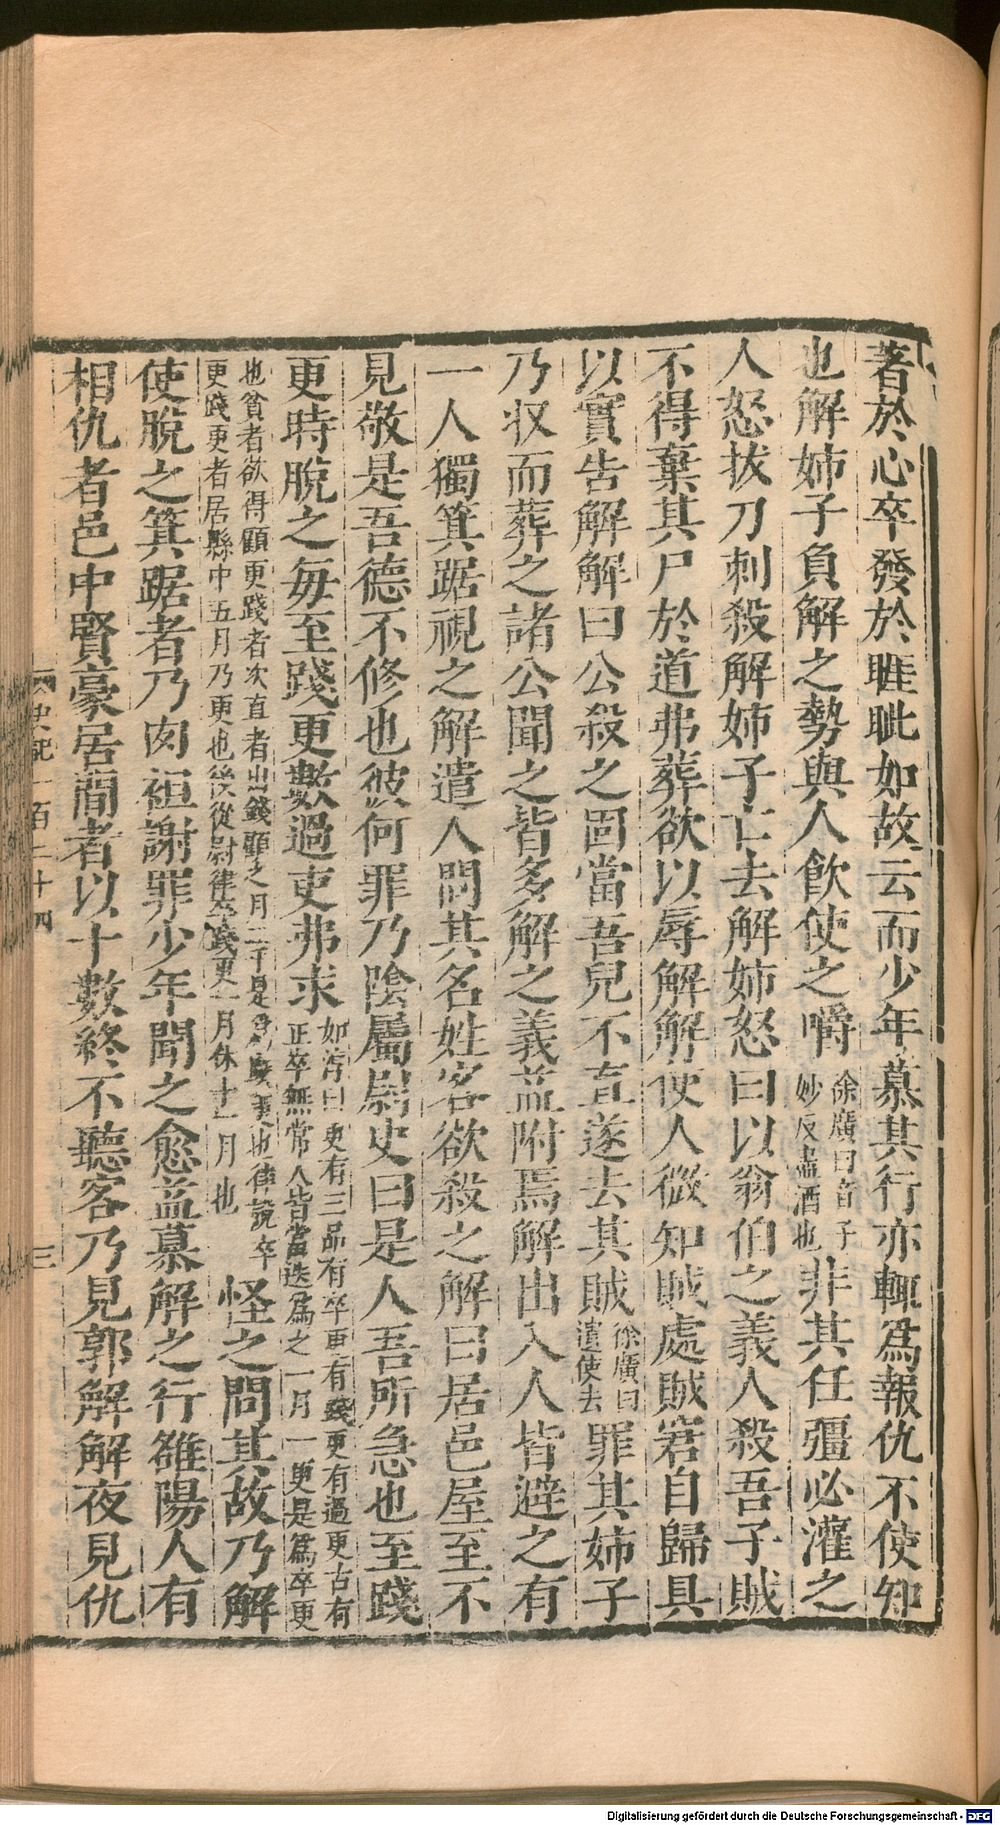 著於心卒發於睚眦如故云而少年慕其行亦輒爲報仇不使知
也解姉子負解之勢與人飮使之嚼徐廣曰音子妙反盡酒也非其任彊必灌之
人怒拔刀刺殺解姉子亡去解姉怒曰以翁伯之義人殺吾子賊
不得棄其尸於道弗葬欲以辱解解使人微知賊處賊窘自歸具
以實告解解曰公殺之固當吾兒不直遂去其賊徐廣曰遣使去罪其姉子
乃収而葬之諸公聞之皆多解之義益附焉解出入人皆避之有
一人獨箕踞視之解遣人問其名姓客欲殺之解曰居邑屋至不
見敬是吾德不修也彼何罪乃陰屬尉史曰是人吾所急也至踐
更時脫之每至踐更數過吏弗求如淳曰更有三品有卒更有踐更有過更古有正卒無常人皆當迭爲之一月一更是爲卒更
也貧者欲得顧更踐者次直者出錢顧之月二千是爲踐更也律說卒更踐更者居縣中五月乃更也後從尉律卒踐更一月休十一月也怪之問其故乃解
使脫之箕踞者乃肉袒謝罪少年聞之愈益慕解之行雒陽人有
相仇者邑中賢豪居閒者以十數終不聽客乃見郭解解夜見仇
史記一百二十四
三
Digitalisierung gefördert durch die Deutsche Forschungsgemeinschaft - DFG